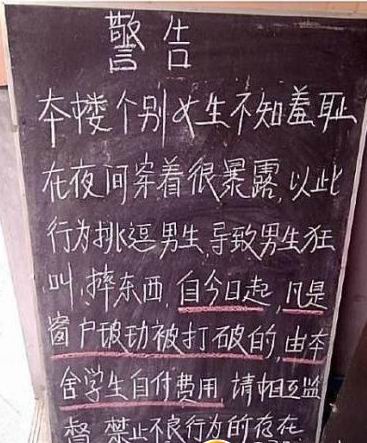 警告
本楼个别女生不知羞耻
在夜间穿着很暴露,以此
行为挑逗男生,导致男生狂
叫,摔东西,自今日起,凡是
窗户玻功被打破的,由本
舍学生自付费用,请相互监
督,禁止不良行为的存在